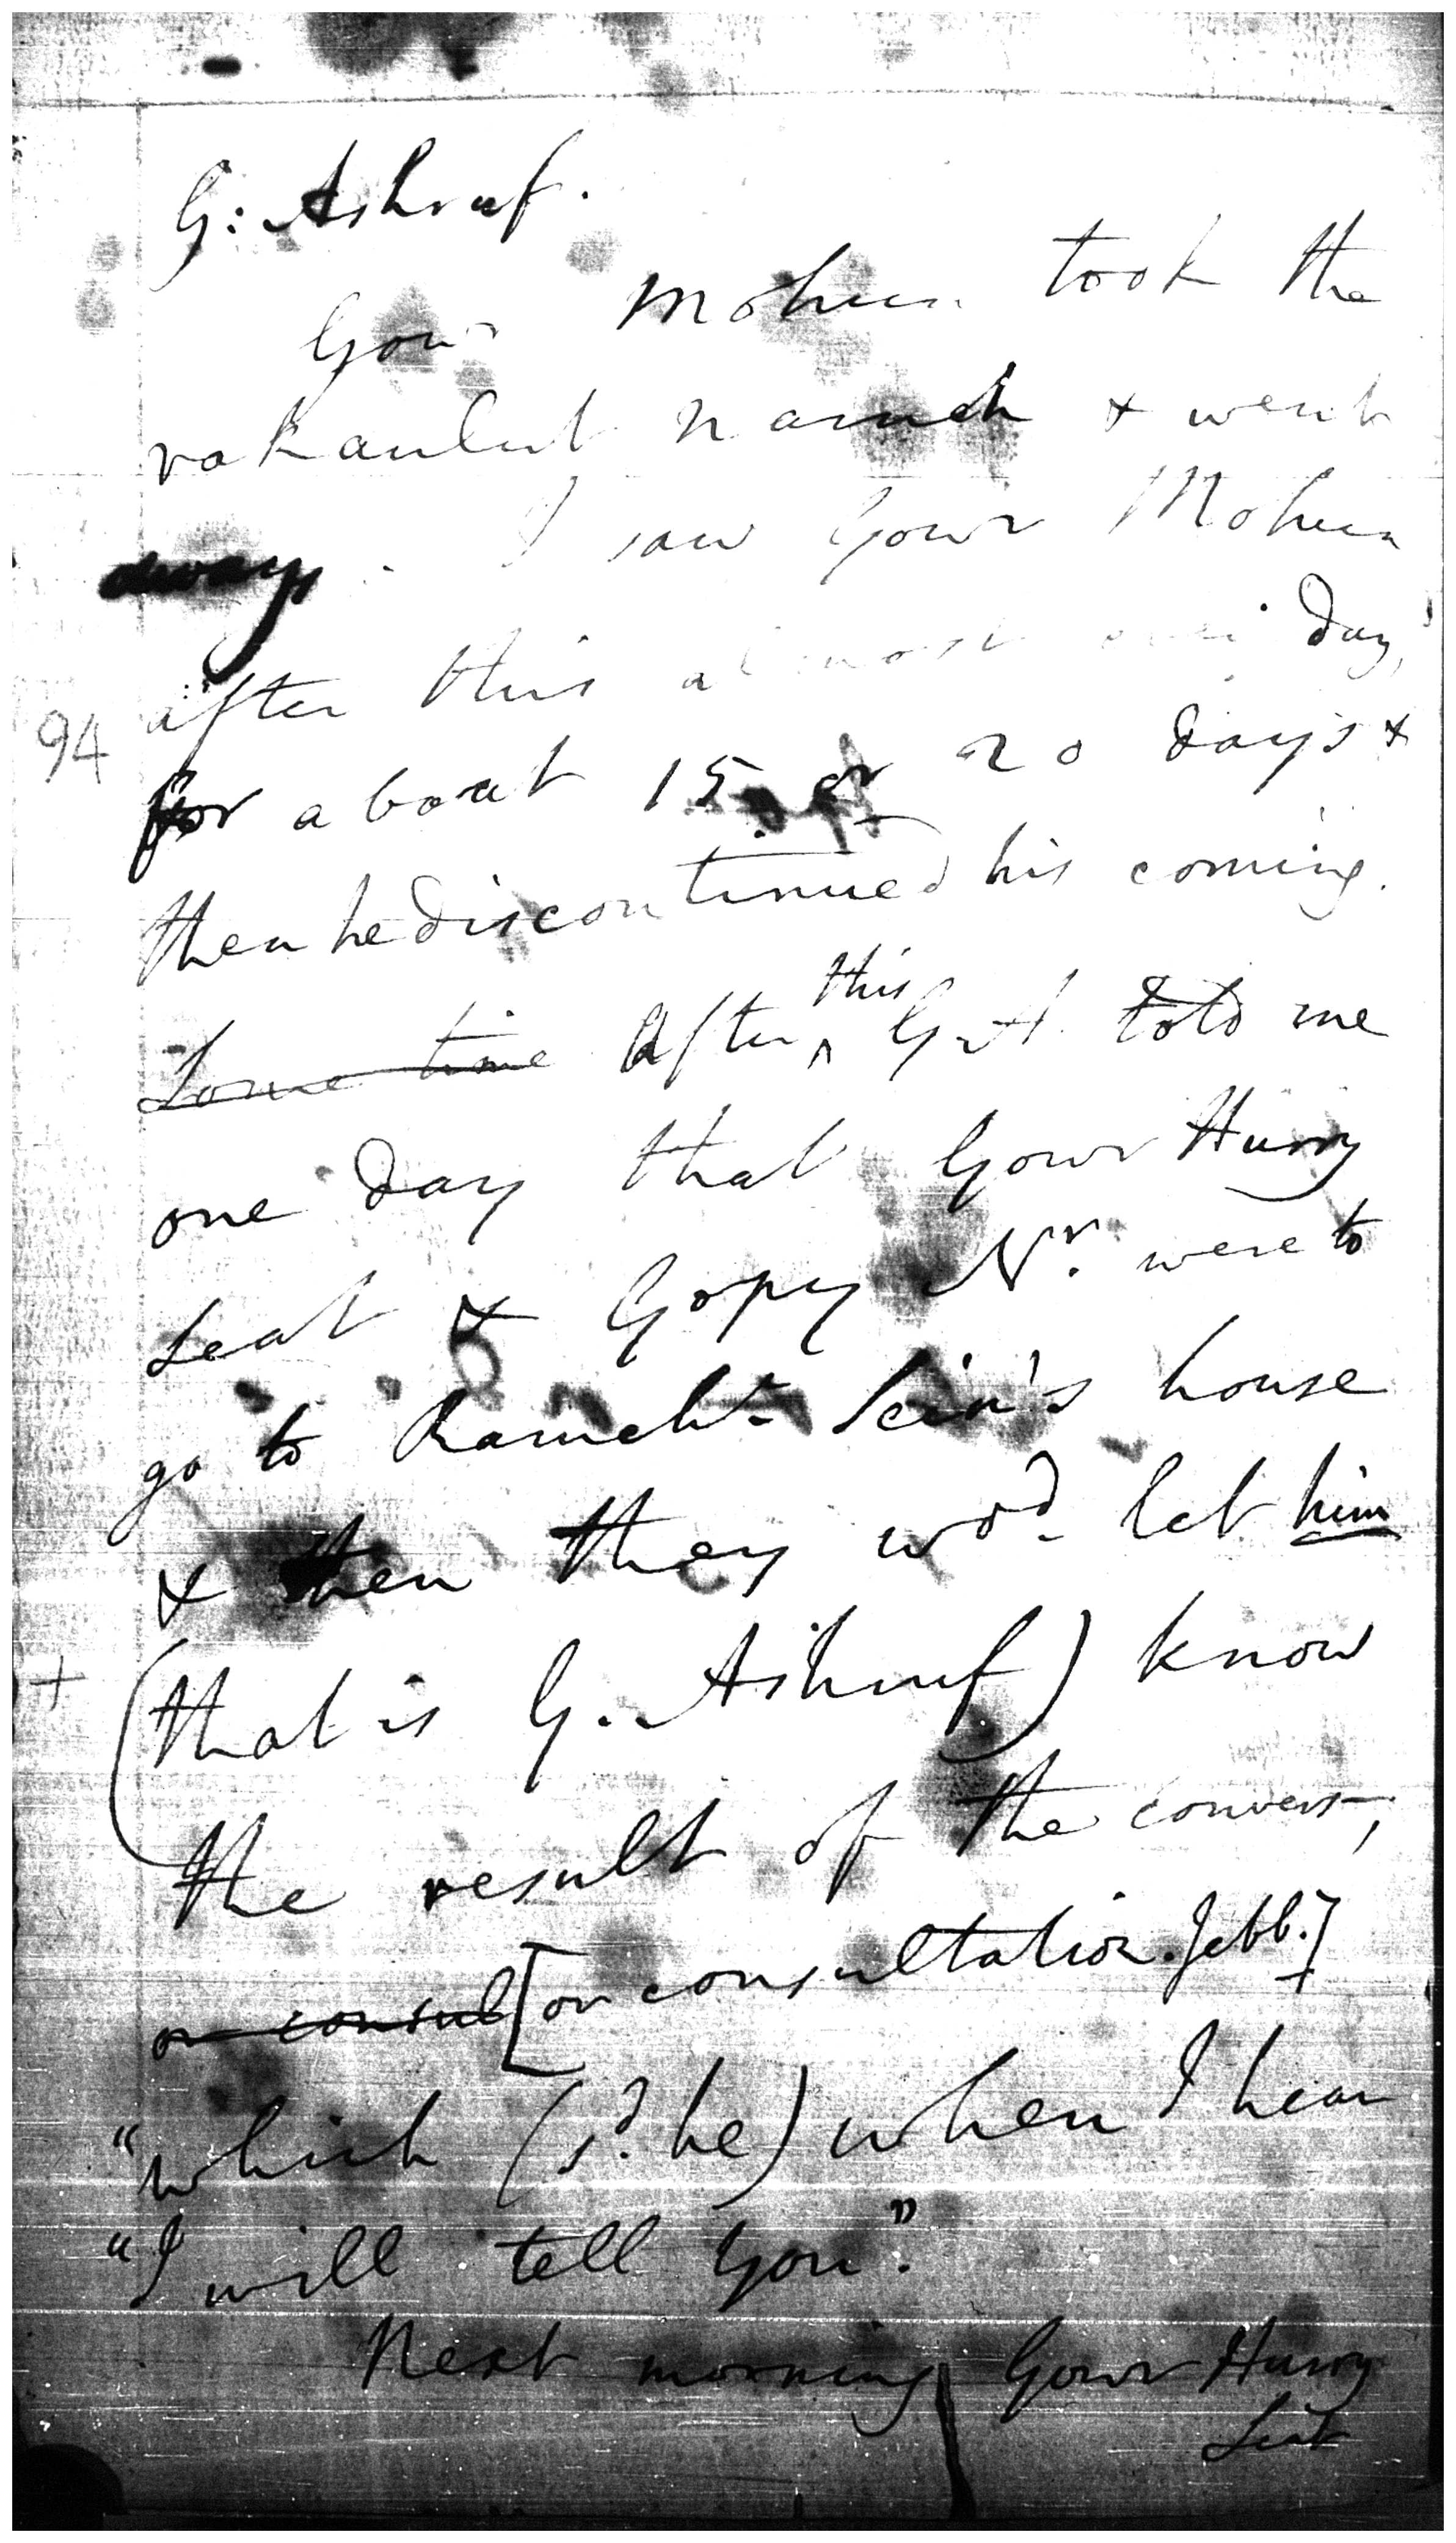 G: Ashruf.
Gour Mohun took the
vakaulut nameh & went
away. I saw Gour Mohun
after this almost every day,
94 for about 15 or 20 days &
then he discontinued his coming.
this
Some time After ^ G. A. told me
one day that Gour Hurry
Seat & Gopey Nr. were to
go to Ramchr. Sein's house
& then they wod. let him
+ (that is G. Ashruf) know
the result of the convers-,
or consul [or consultation. Jebb.]
"which (sd. he) when I hear
"I will tell you".
Next morning Gour Hurry
Seat